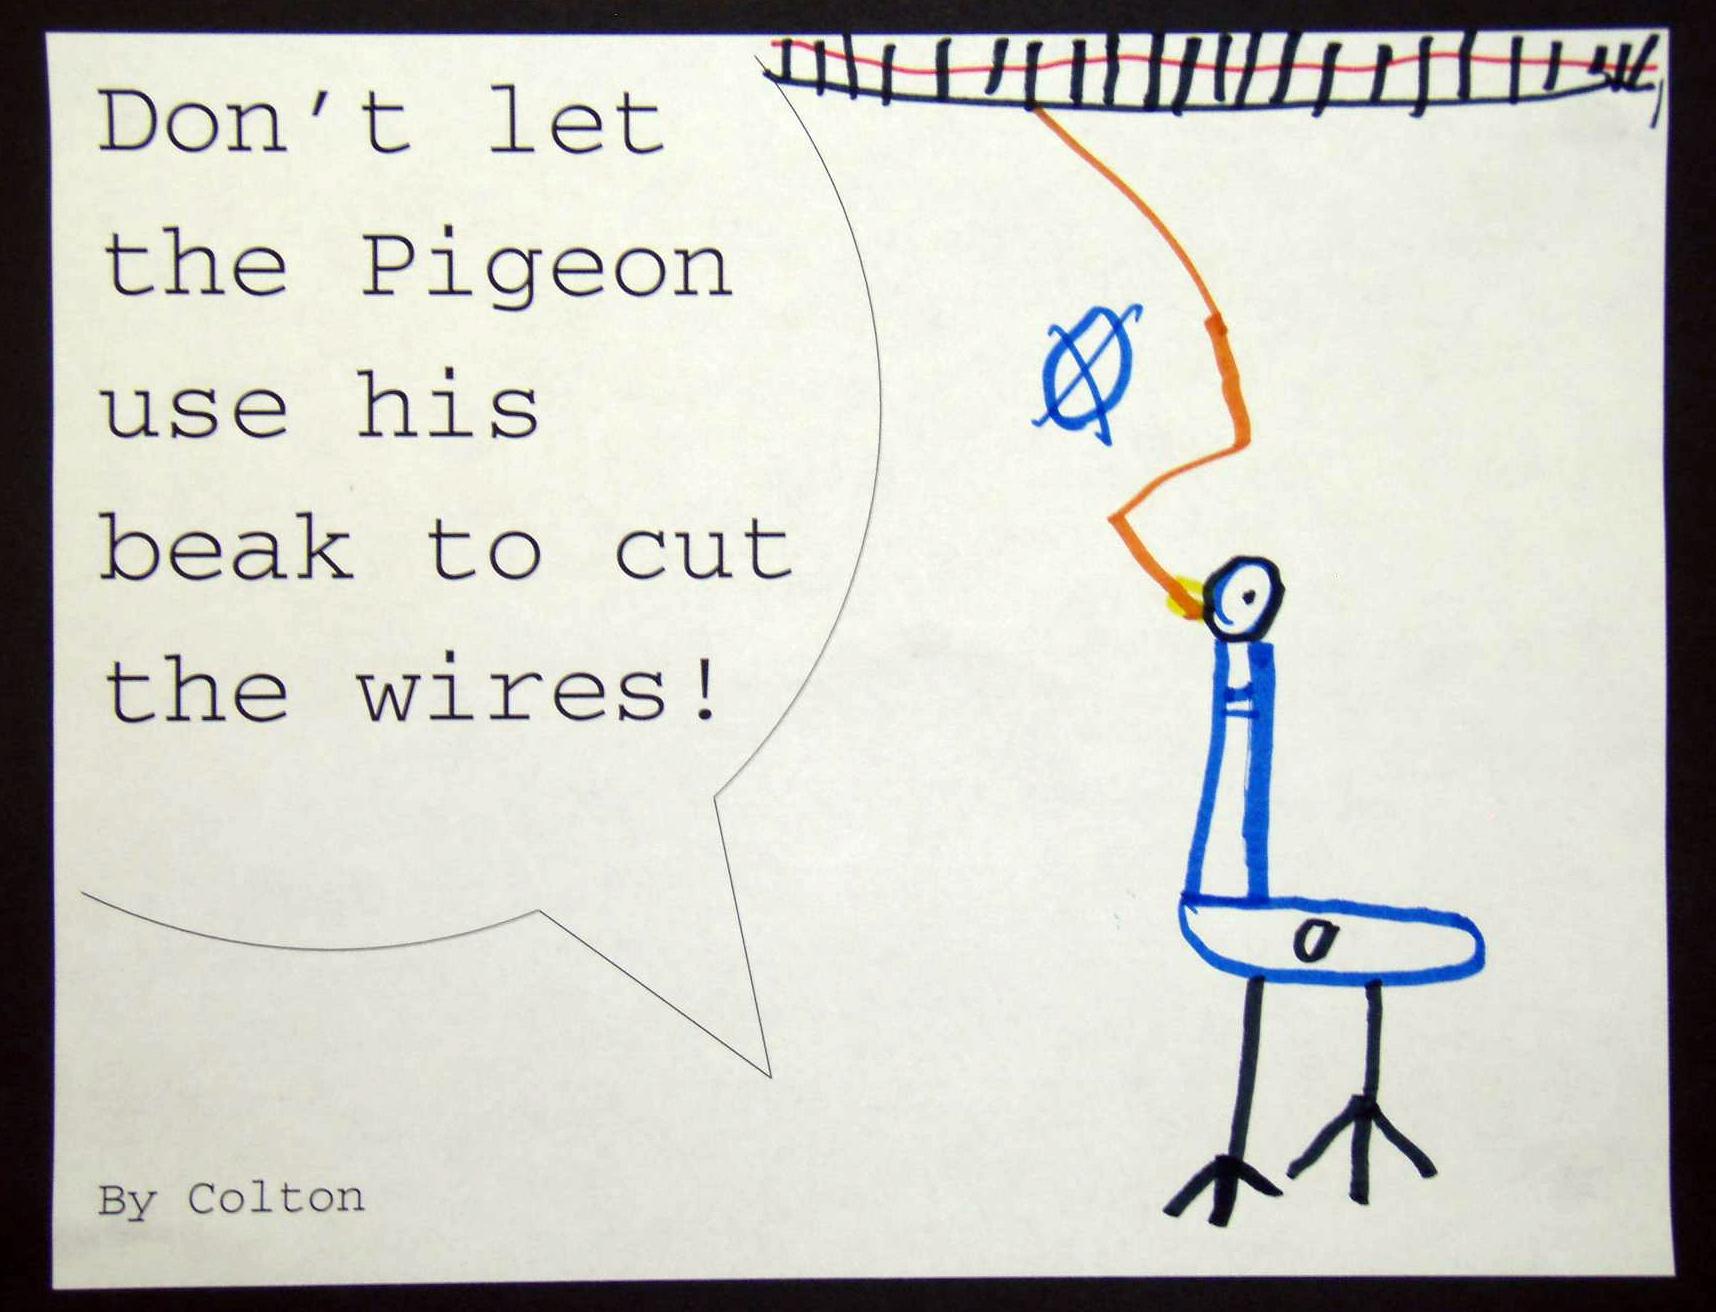 Don't let
the Pigeon
use his
beak to cut
the wires!
By Colton